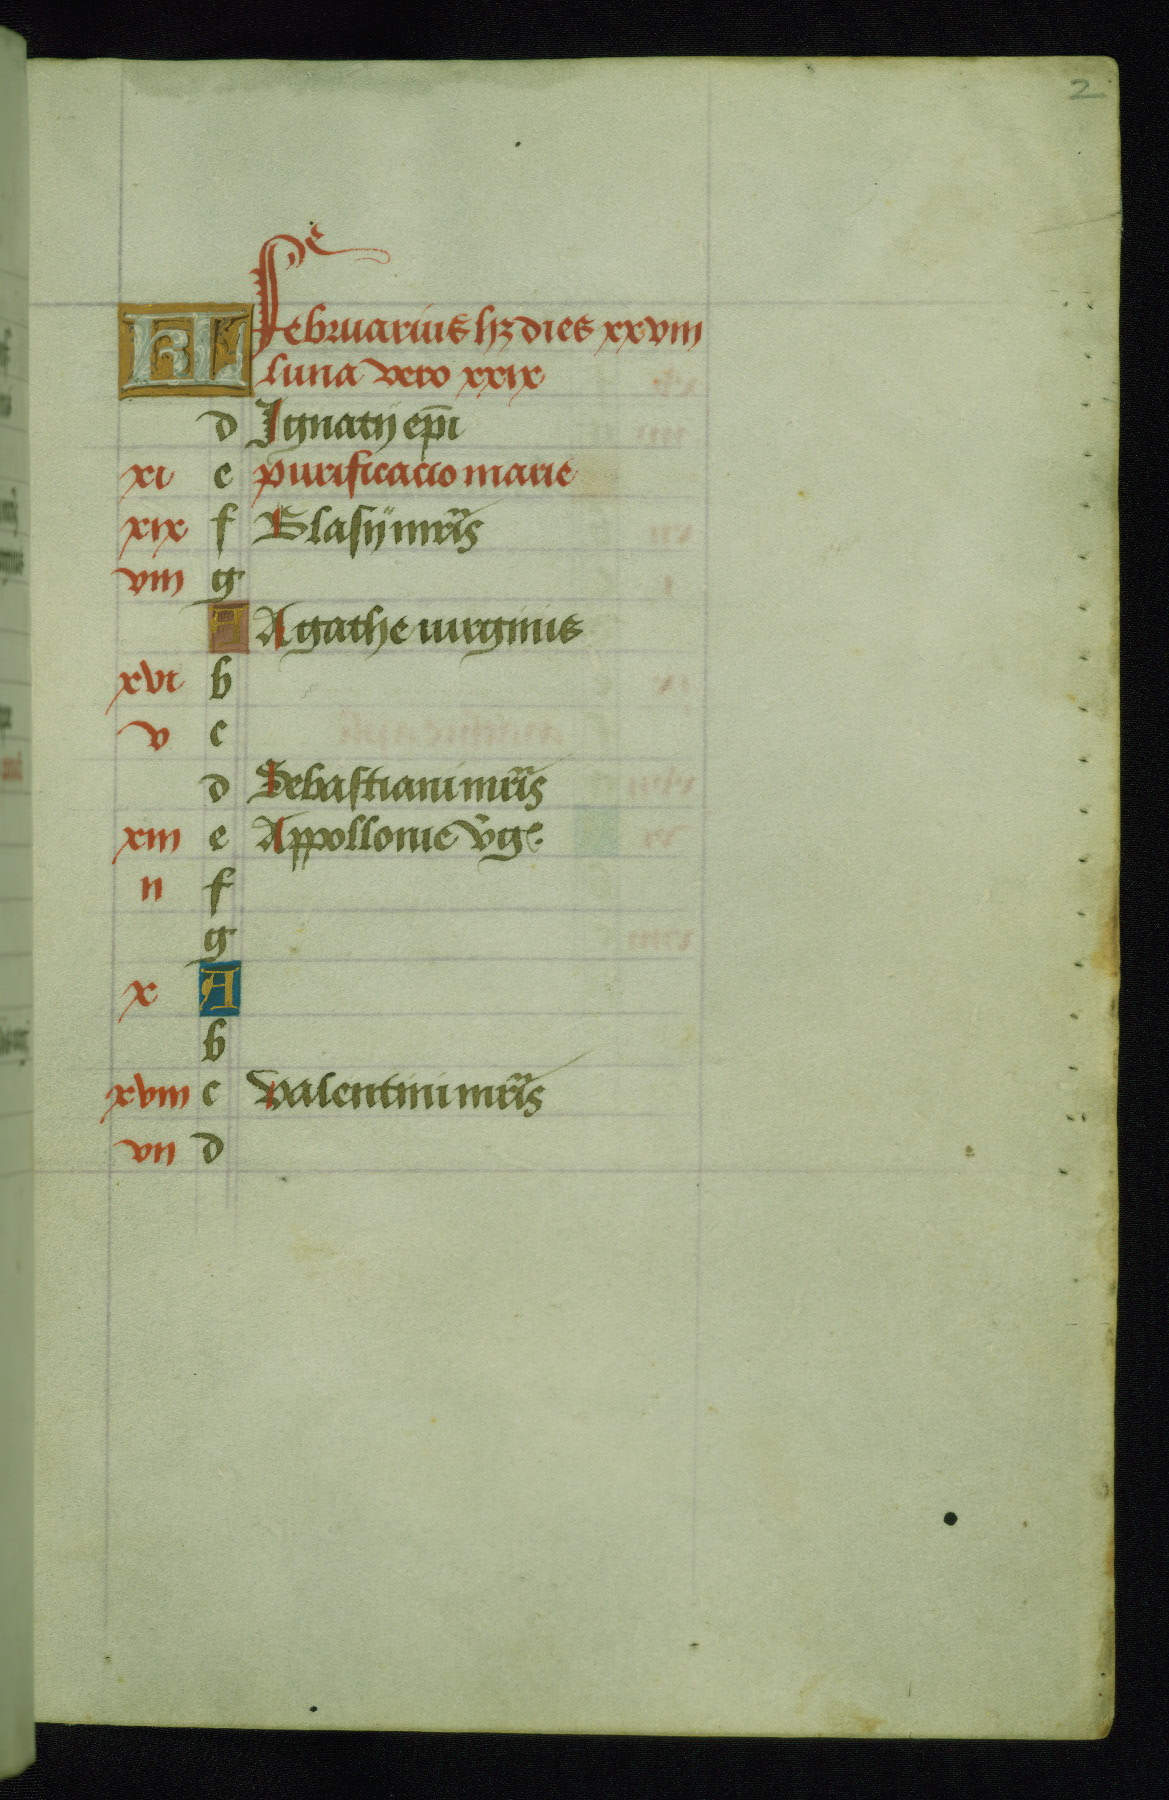 2
KL Februarius hꝫ dies xxviii
luna vero xxix
d Ignatij ep̄i
xi e purificacio marie
xix f Blasij mr̄is
viii g
A Agathe uirginis
xvi b
v c
d Sebastiani mr̄is
xiii e Appollonie v̄g
ii f
g
x A
b
xviii c Valentini mr̄is
vii d